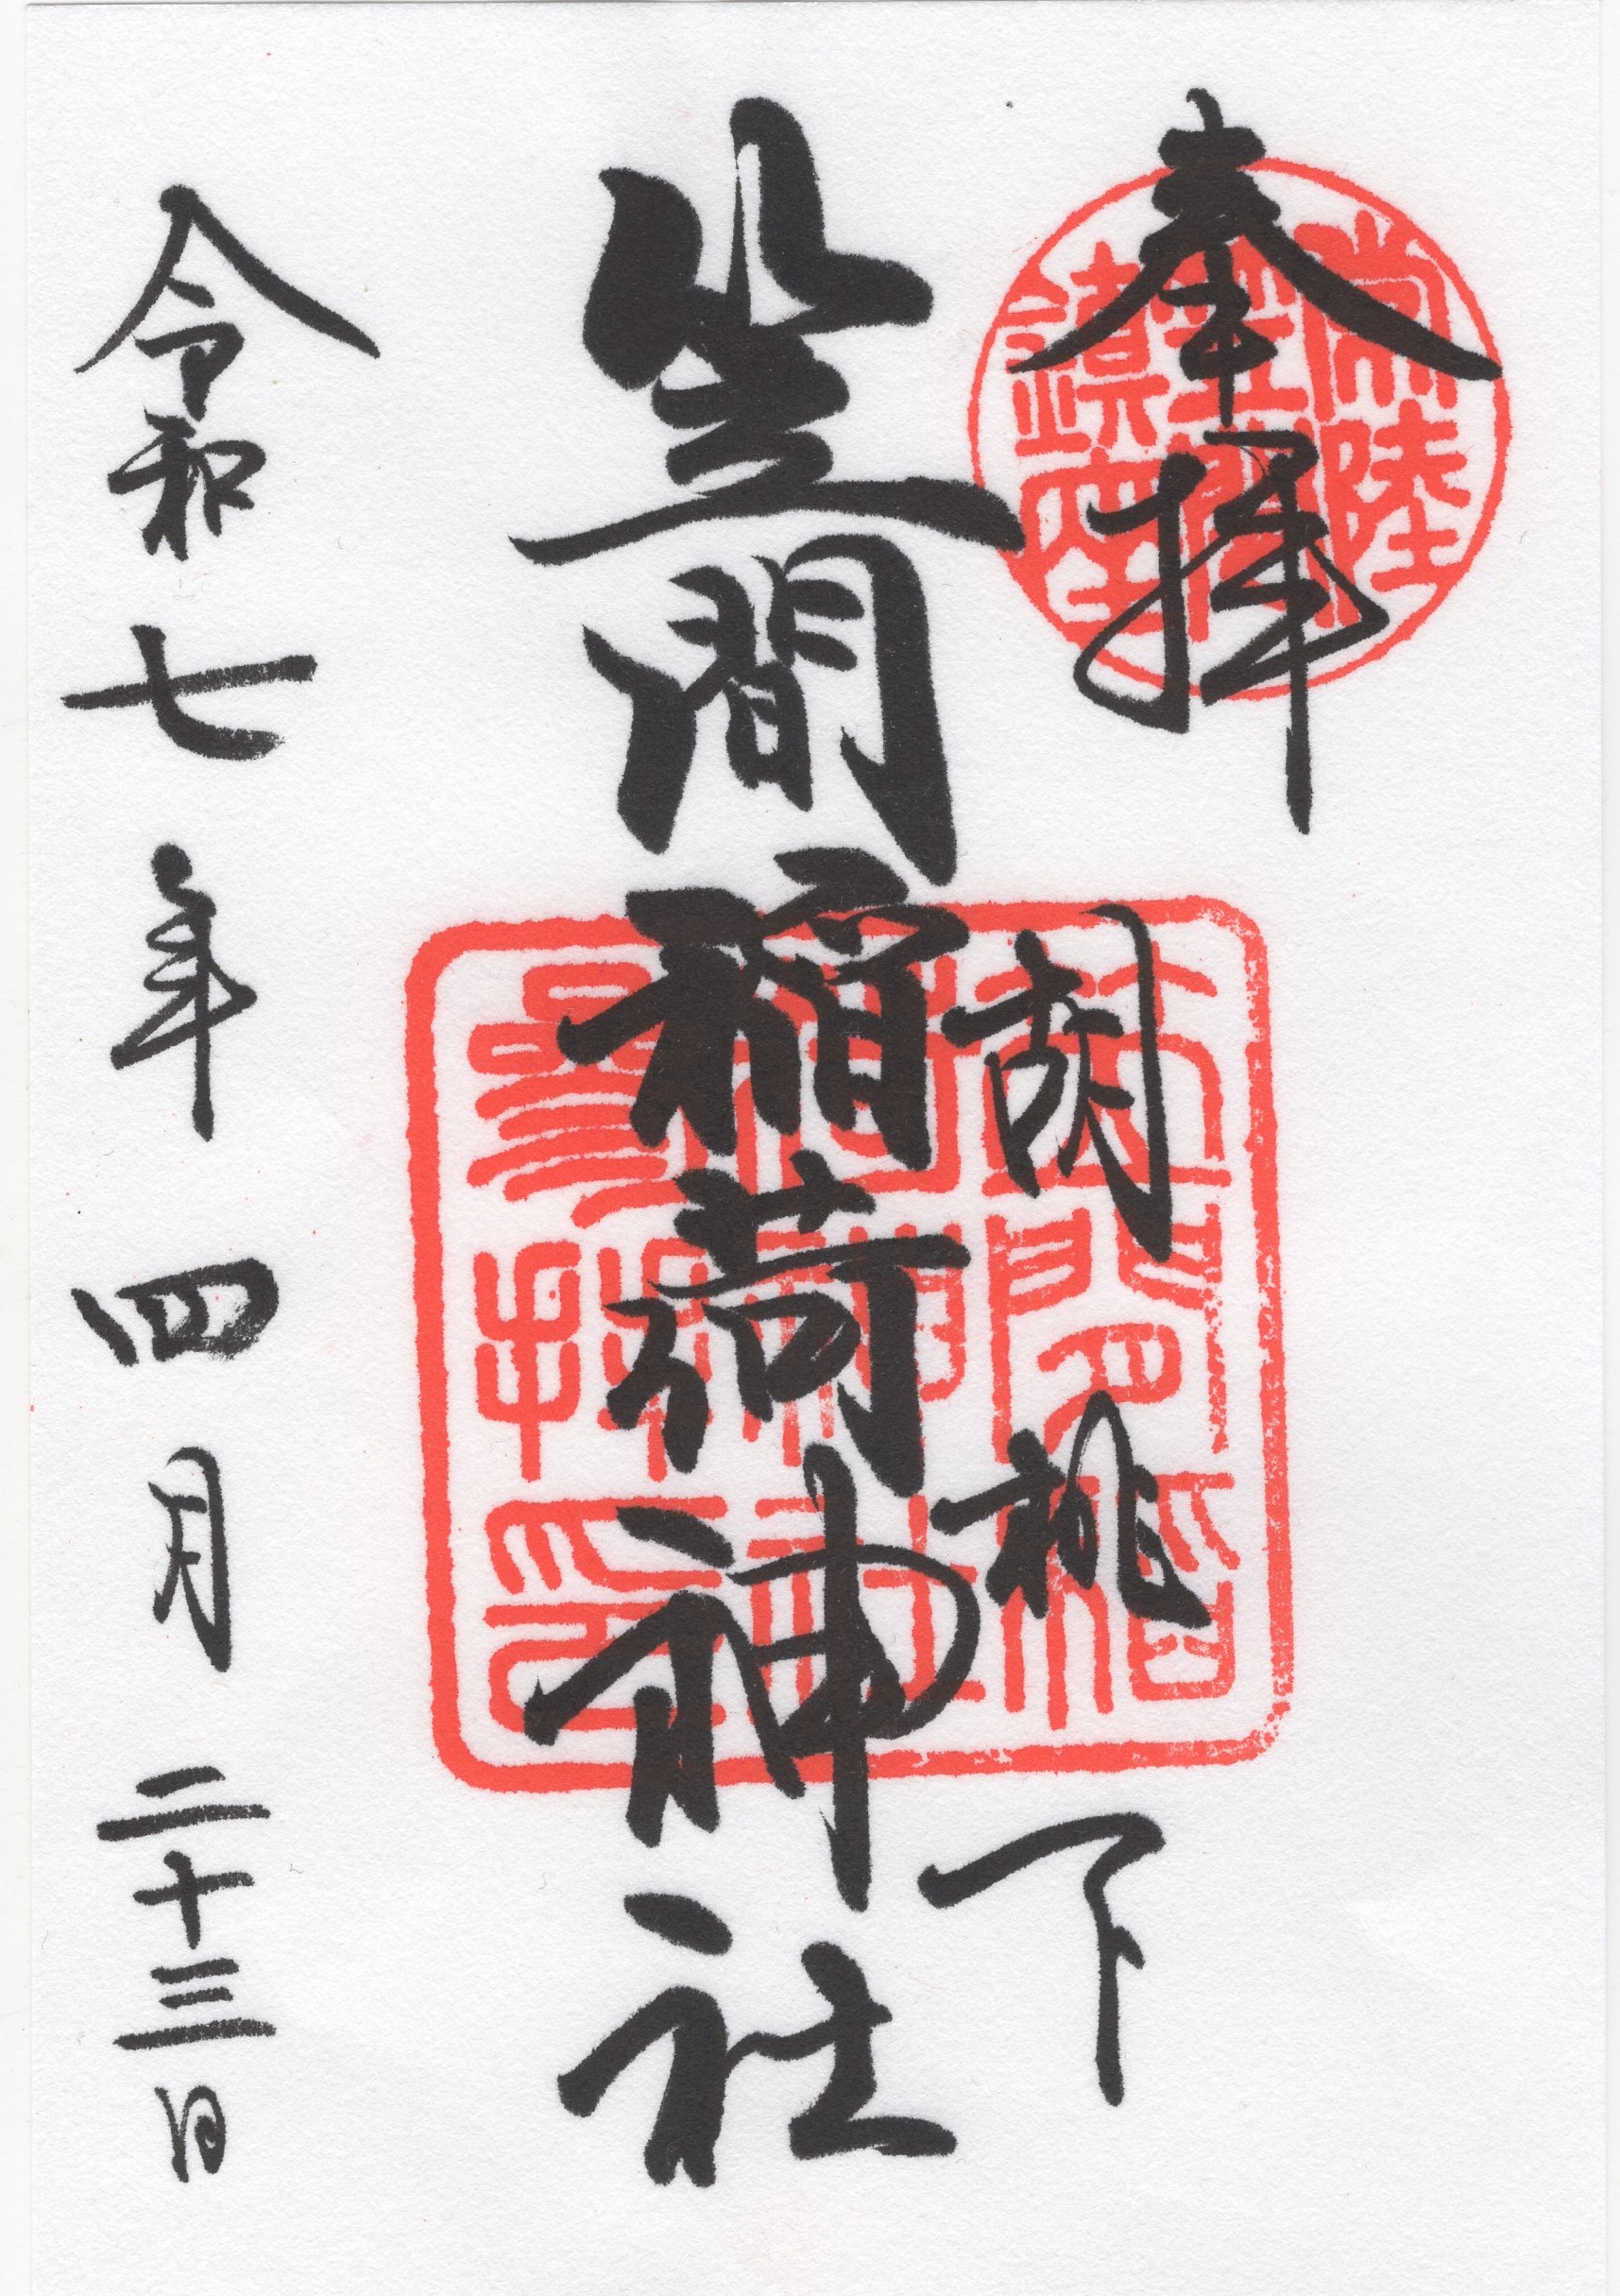 奉拝
常陸
笠間
鎮座
胡桃下
笠間稲荷神社
笠間稲
荷神社
參拝印
令和七年四月二十三日